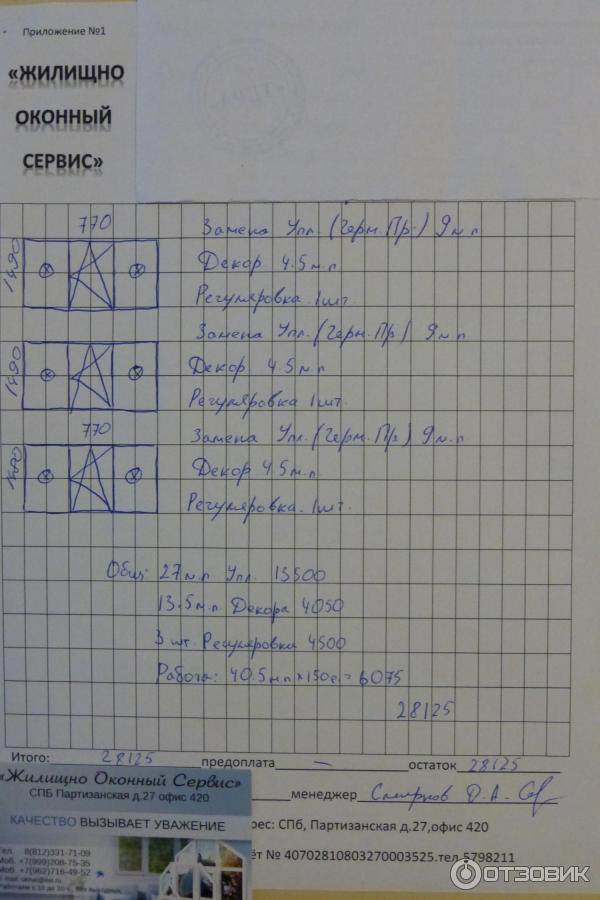 Приложение №1
«ЖИЛИЩНО
ОКОННЫЙ
СЕРВИС»
770
1490
Замена Упл. (Герм. Пр.) 9 м.п
Декор 4.5 м.п
Регулировка. 1 шт.
1490
Замена Упл. (Герм. Пр) 9 м.п.
Декор 4.5 м.п
Регулировка 1 шт.
770
1490
Замена Упл. (Герм. Пр) 9 м.п
Декор 4.5 м.п.
Регулировка. 1 шт.
Общ: 27 м.п. Упл. 13500
13.5 м.п. Декора 4050
3 шт. Регулировки 4500
Работа: 40.5 м.п × 150 = 6075
28125
Итого: 28125 предоплата — остаток 28125
«Жилищно Оконный Сервис»
СПБ Партизанская д.27 офис 420
менеджер Смирнов Д.А.
КАЧЕСТВО ВЫЗЫВАЕТ УВАЖЕНИЕ
рес: СПб, Партизанская д.27,офис 420
Тел. 8(812)331-71-09
Моб. +7(999)208-75-35
Моб. +7(962)716-49-52
ёт № 40702810803270003525.тел.5798211
ОТЗОВИК